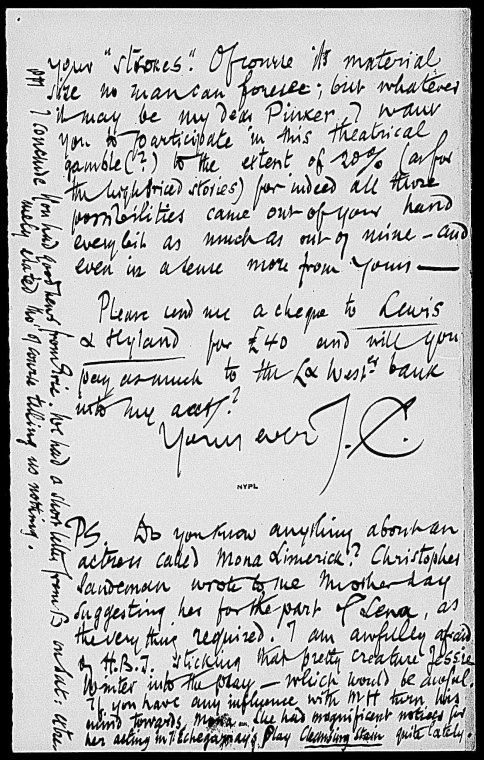 your "strokes". Of course its material
size no man can foresee; but whatever
it may be my dear Pinker, I want
you to participate in this theatrical
gamble (?) to the extent of 20% (as for
the high priced stories) for indeed all those
possibilities came out of your hand
every bit as much as out of mine – and
even in a sense more from yours —
Please send me a cheque to Lewis
& Hyland for £40 and will you
pay as much to the L & West.er bank
into my acct.?
Yours ever J. C.
NYPL
PS. Do you know anything about an
actress called Mona Limerick? Christopher
Sandeman wrote to me the other day
suggesting her for the part of Lena, as
the very thing required. I am awfully afraid
of H.B.I. sticking that pretty creature Jessie
Winter into the play – which would be awful.
If you have any influence with MH turn his
mind towards Mona. She had magnificent notices for
her acting in Echegaray's play Cleansing Stain quite lately.
PPS I conclude you had good news from Eric. We had a short letter from B on Sat:
merely elated tho' of course telling us nothing.